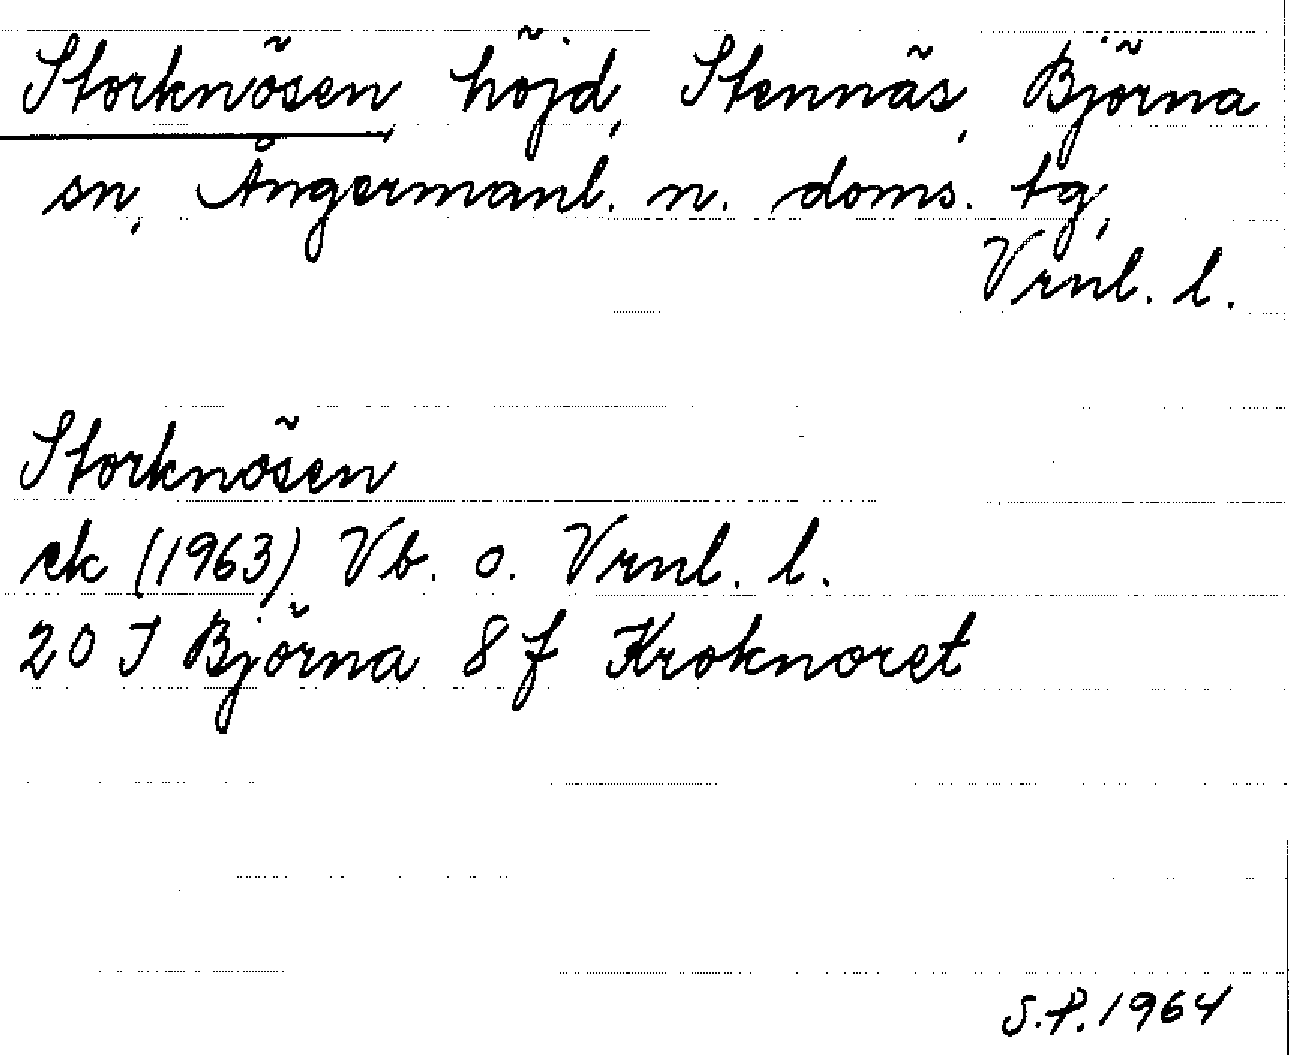 Storknösen, höjd, Stennäs, Björna
sn, Ångermanl. n. doms. tg,
Vrnl. l.
Storknösen
ek (1963) Vb. o. Vrnl. l.
20 J Björna 8 f Kroknoret
S.P. 1964